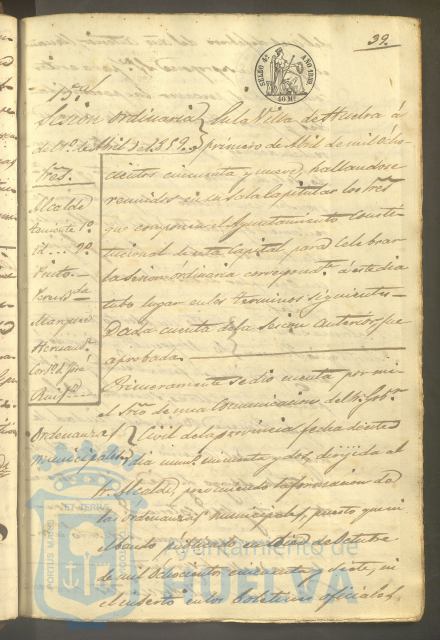 39.
SELLO 4º AÑO 1859
40 Ms.
Sesion ordinaria
del 1º de Abril de 1859.
En la Villa de Huelva á
primero de Abril de mil ocho-
cientos cincuenta y nueve, hallandose
reunidos en su Sala Capitular los Sres.
que componen el Ayuntamiento consti-
tucional de esta Capital para celebrar
la sesion ordinaria correspondte. á este dia
tubo lugar en los terminos siguientes-
Dada cuenta de la sesion anterior fue
aprobada.
Sres.
Alcalde
Teniente 1º
Id... 2º
Pinto
Marquez
Hernandz.
Primeramente se dio cuenta por mi
el Srio de una comunicacion del Sr. Gobor.
Ordenanzas
municipales
Civil de la provincia, fecha
dia, numº cincuenta y dos, dirijida al
Sr. Alcalde,
las ordenanzas municipales, puesto que ni
el bando publicado en de Octubre
de mil ochocientos cincuenta y siete, ni
el inserto en los Boletines oficiales
PORTUS MARIS ET TERRÆ
Ayuntamiento de
HUELVA